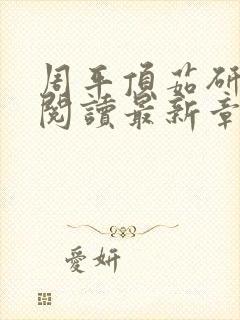 周平傾茹研
閱讀最新章
愛妍